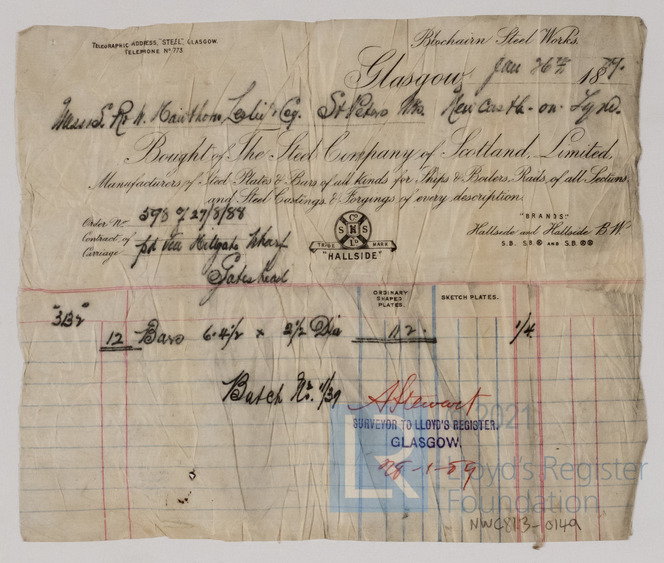 TELEGRAPHIC ADDRESS, "STEEL" GLASGOW.
TELEPHONE No 773.
Blochairn Steel Works,
Glasgow, Jan 26th 1889.
Messrs. R. & W. Hawthorn, Leslie & Co. St Peters Wks. Newcastle-on-Tyne.
Bought of The Steel Company of Scotland, Limited,
Manufacturers of Steel Plates & Bars of all kinds for Ships & Boilers, Rails of all Sections
and Steel Castings & Forgings of every description.
Order No 593 of 27/8/88
Contract of
Carriage pd via Hillgate Wharf
Gateshead
Co
S N S
Ld
TRADE MARK
"HALLSIDE"
"BRANDS"
Hallside and Hallside B.W.
S.B. S.B.® AND S.B.®®
ORDINARY SHAPED PLATES.
SKETCH PLATES.
12 Bars 6.4½ × 2½ Dia 11.2. 1/4
Batch No. 1/39
A Stewart
SURVEYOR TO LLOYD'S REGISTER,
GLASGOW.
28-1-89
LR
© 2021
Lloyd's Register
Foundation
NWC813-0149